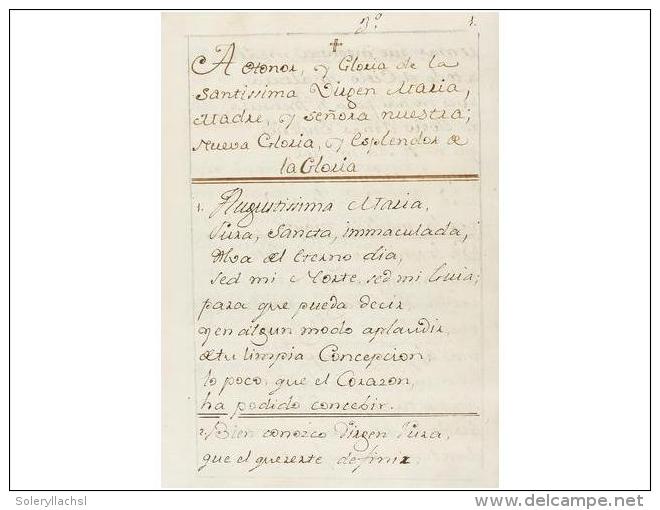 3º 1.
A Honor, y Gloria de la
Santissima Virgen Maria,
Madre, y Señora nuestra;
Nueva Gloria, y Esplendor de
la Gloria
1. Augustissima Maria,
Pura, Sancta, immaculada,
Alva del Eterno dia,
sed mi Norte, sed mi Guia;
para que pueda decir,
y en algun modo aplaudir,
de tu limpia Concepcion,
lo poco, que el Corazon,
ha podido concebir.
2. Bien conozco Virgen Pura,
que el quererte definir
Soleryllachsl
delcampe.net